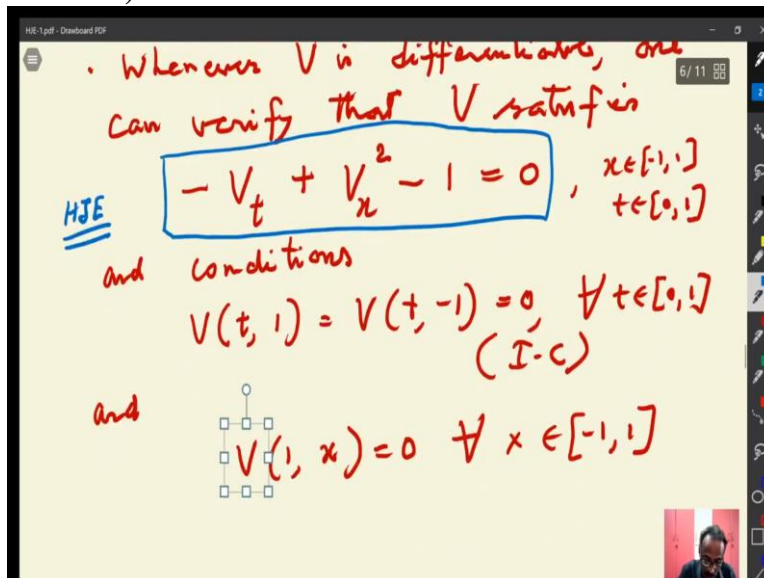 HJE-1.pdf - Drawboard PDF
6/11
. Whenever V is differentiable, one
can verify that V satisfies
HJE - V_t + V_x^2 - 1 = 0 , x∈[-1,1]
t∈[0,1]
and conditions
V(t, 1) = V(t, -1) = 0, ∀ t∈[0,1]
(I-C)
and
V(1, x) = 0 ∀ x ∈ [-1,1]